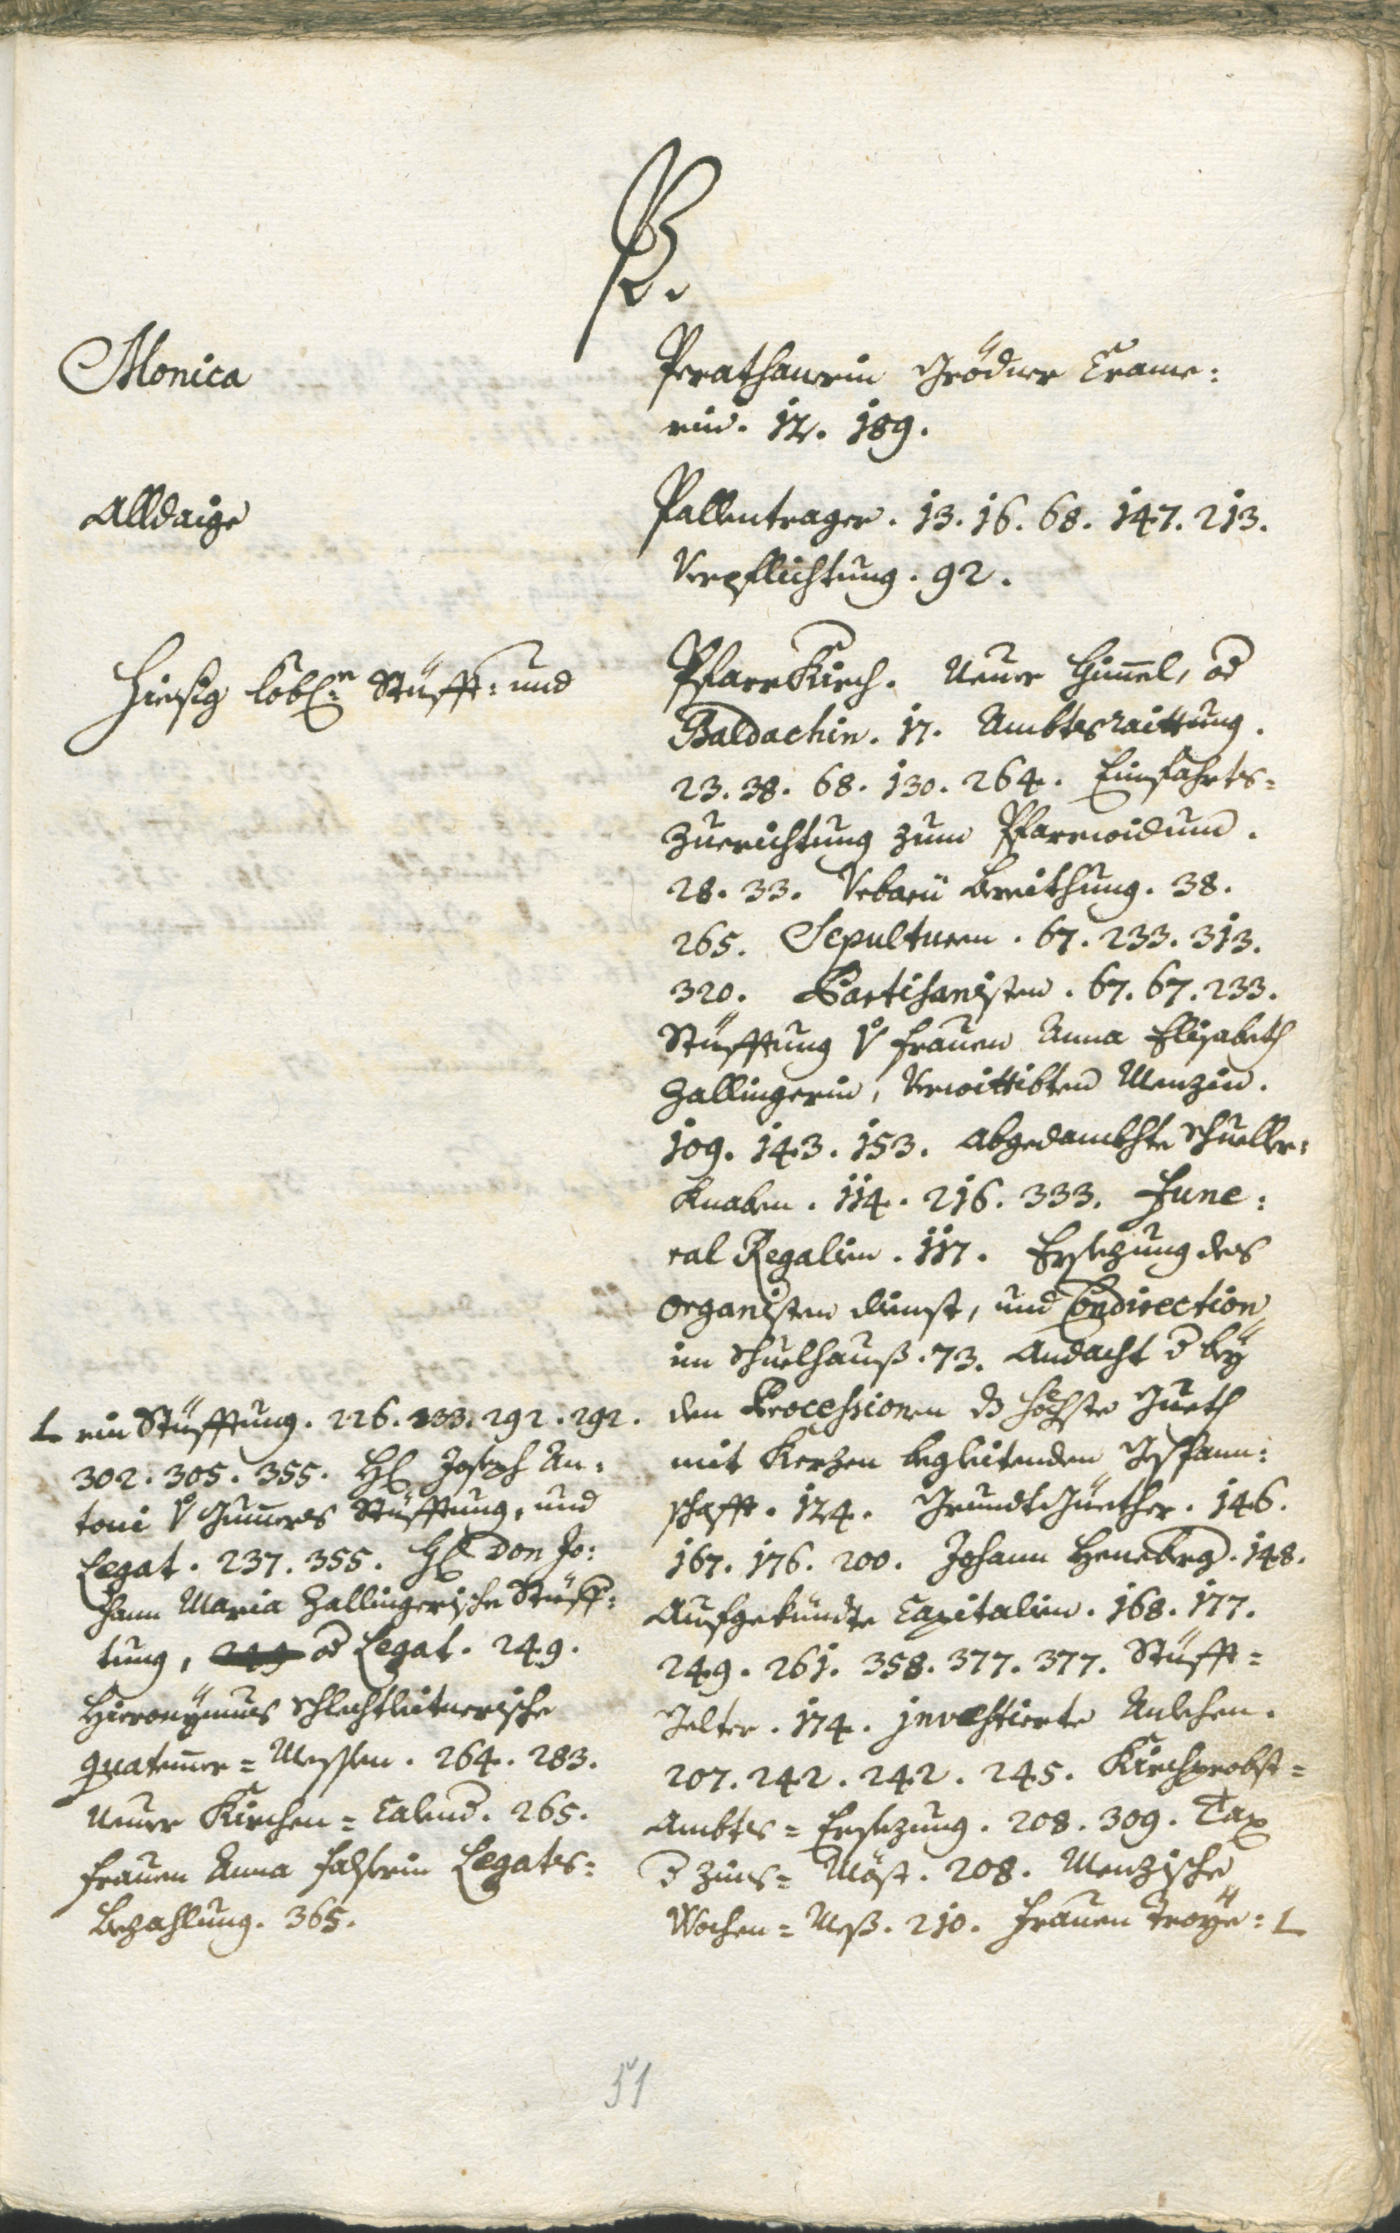 P.
Monica
Perathanerin Grödner Crame:
rin. 12. 189.
Alldaige
Pallentrager. 13. 16. 68. 147. 213.
Verpflichtung. 92.
Hiesig löbl:n Stüfft: und
PfarrKirch. Neuer Him̄el, od
Baldachin. 17. Ambtsraittung.
23. 38. 68. 130. 264. Einfahrts=
Zuerichtung zum Pfarrwidum.
28. 33. Urbarü Bereithung. 38.
265. Sepulturen. 67. 233. 313.
320. Partisanisten. 67. 67. 233.
Stüfftung v Frauen Anna Elisabeth
Zallingerin, Verwittibten Menzin.
109. 143. 153. abgedambhte Schueller:
Knaben. 114. 216. 333. Fune:
ral Regalien. 117. Ersezung des
Organisten dienst, und Condirection
im Schuelhauß. 73. Andacht d bey
den Processionen ds höchste Gueth
mit Kerzen begleitenden Gspann:
schafft. 124. GrundtGüether. 146.
167. 176. 200. Johann Heneberg. 148.
Aufgekündte Capitalien. 168. 177.
249. 261. 358. 377. 377. Stüfft=
Gelter. 174. investierte Anlehen.
207. 242. 242. 245. Kirchprobst=
Ambts= Ersezung. 208. 309. Tax
d Zins= Möst. 208. Menzische
Wochen= Meß. 210. Frauen Troyë: L
L rin Stüfftung. 226. 233. 292. 292.
302. 305. 355. H Joseph An:
toni v Gum̄ers Stüfftung, und
Legat. 237. 355. H Don Jo:
hann Maria Zallingerische Stüff:
tung, 249 od Legat. 249.
Hieronÿmus Schlechtleitnerische
Quatem̄er= Messen. 264. 283.
Neuer Kirchen= Calend. 265.
Frauen Anna Legats=
Bezahlung. 365.
51